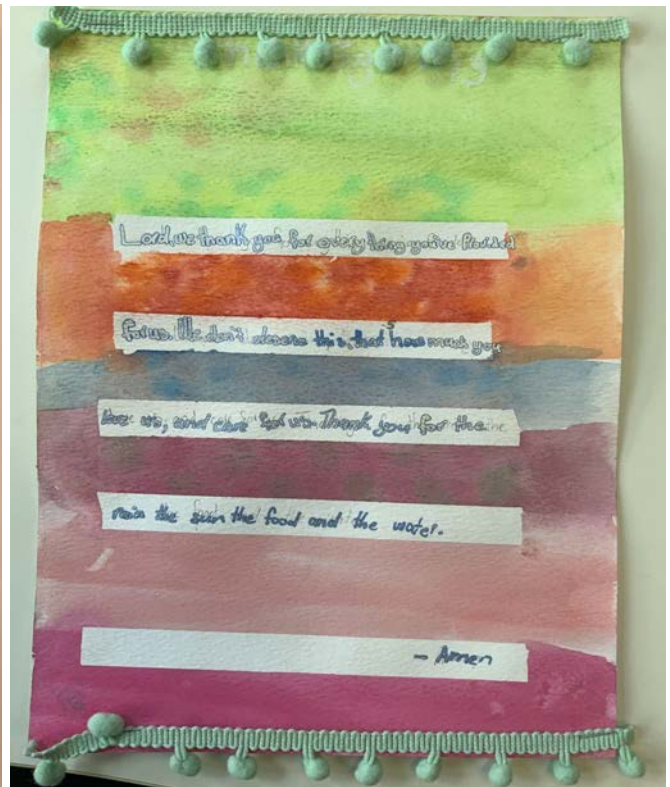 Lord, we thank you, for everything you've Provided
for us. We don't deserve this, that how much you
love us, and care for us. Thank you for the
rain the sun the food and the water.
- Amen